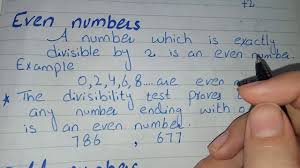 +2
Even numbers
A number which is exactly
divisible by 2 is an even number.
Example
0,2,4,6,8....are even
* The divisibility test proves
any number ending with
is an even number.
786 , 677
numbers